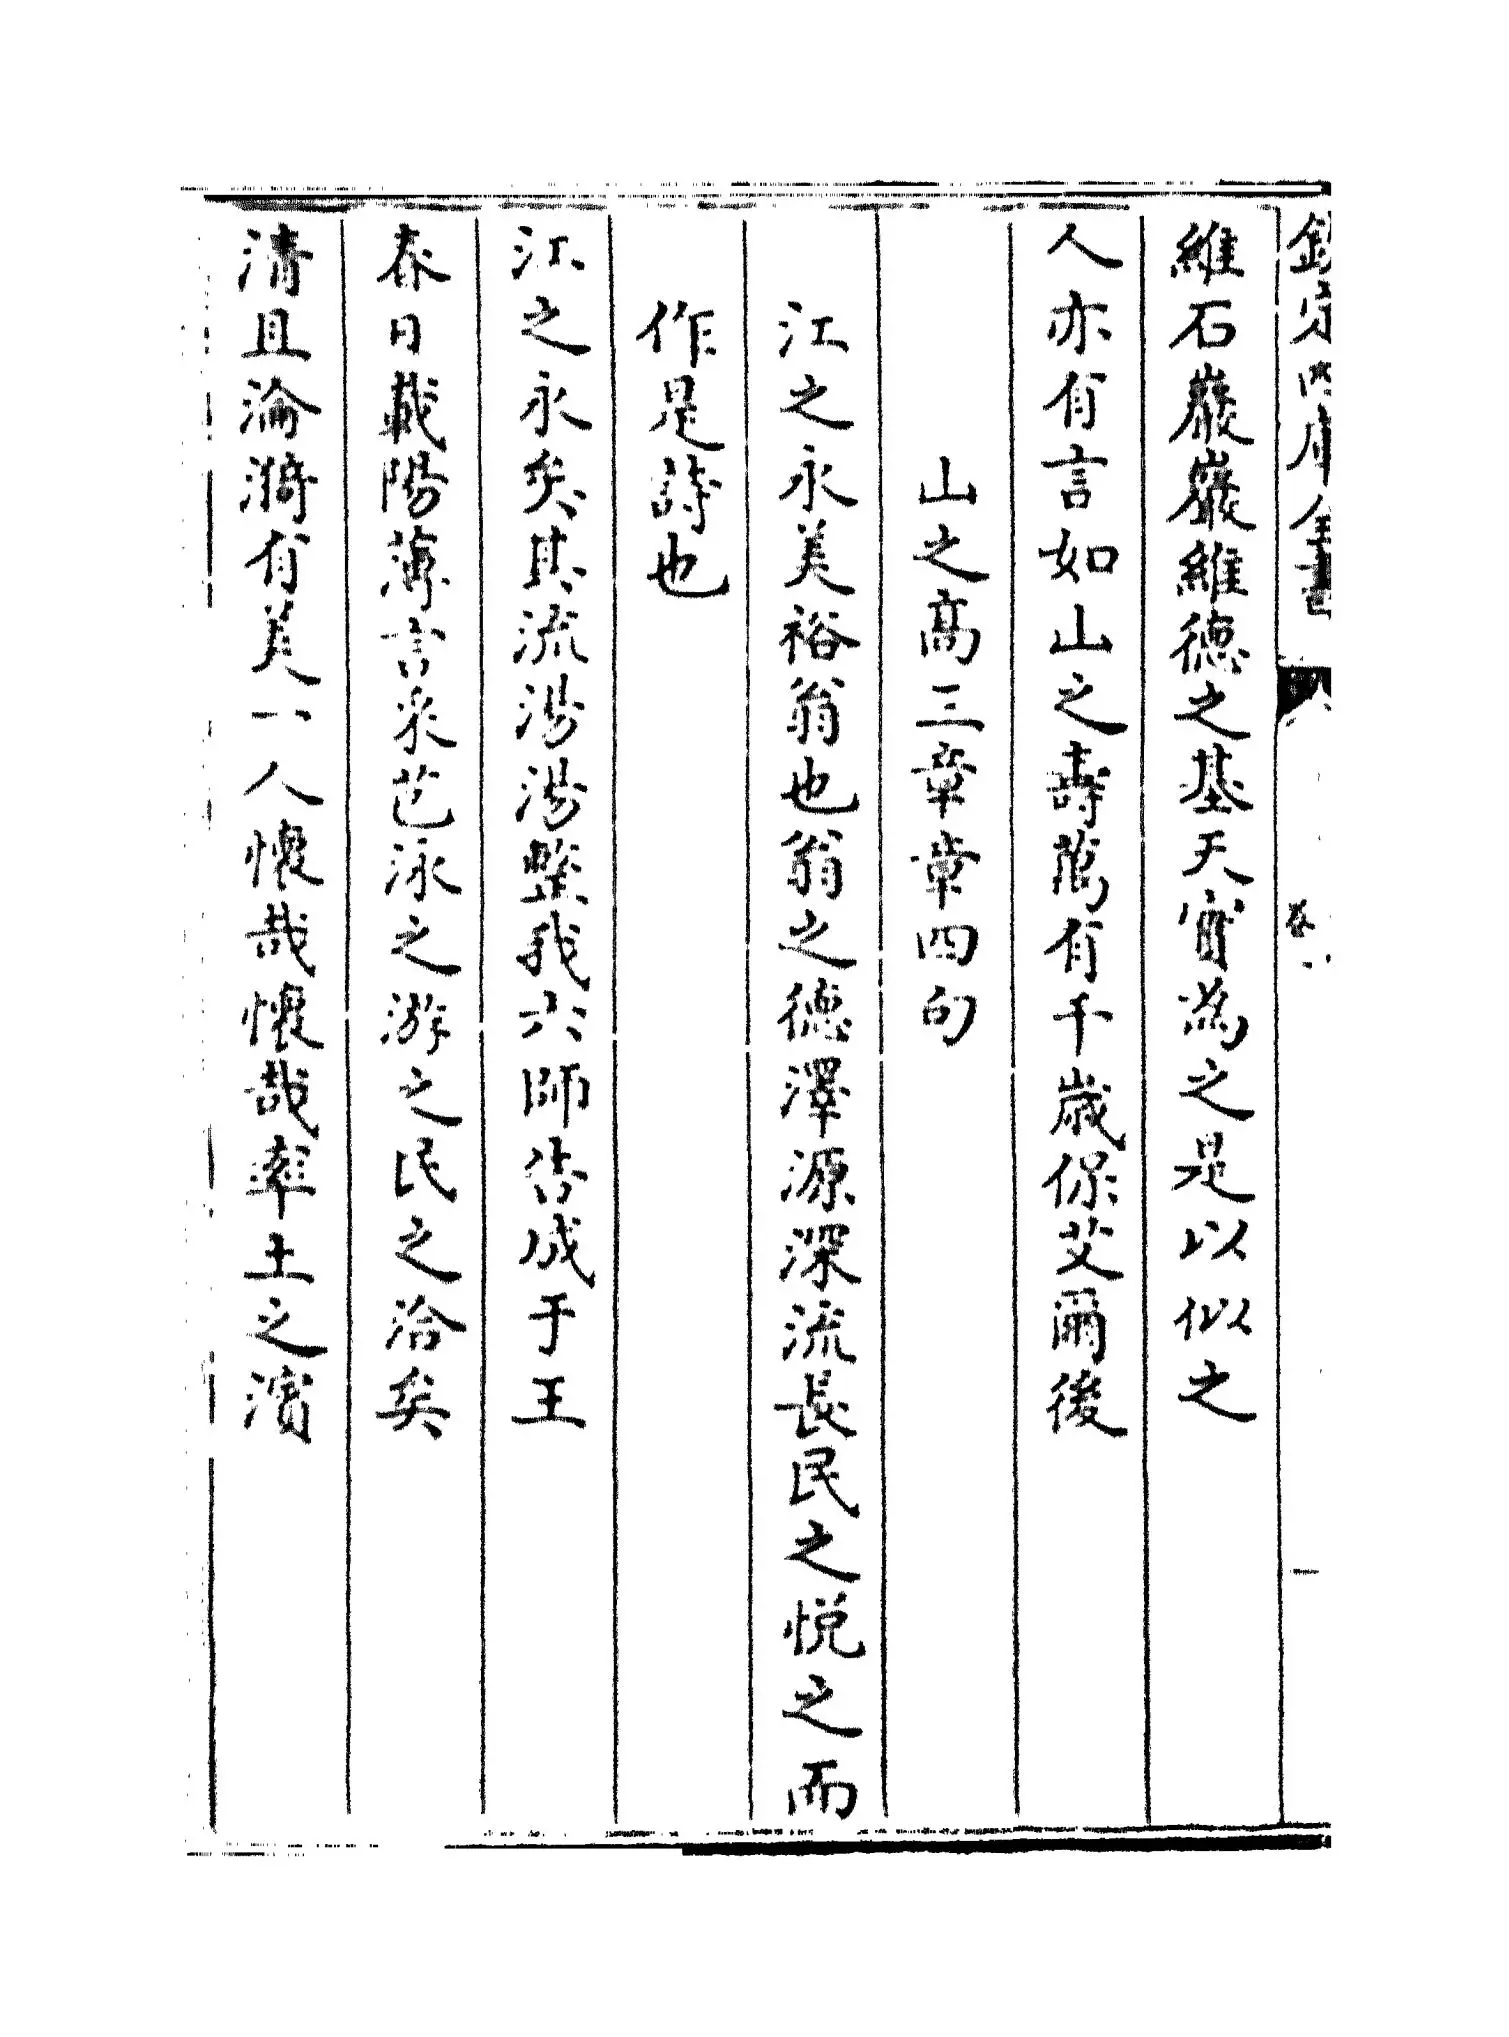 欽定四庫全書
卷一
一
維石巖巖維德之基天實為之是以似之
人亦有言如山之壽萬有千歲保艾爾後
山之高三章章四句
江之永美裕翁也翁之德澤源深流長民之悅之而
作是詩也
江之永矣其流湯湯整我六師告成于王
春日載陽薄言采芑泳之游之民之洽矣
清且淪漪有美一人懷哉懷哉率土之濱